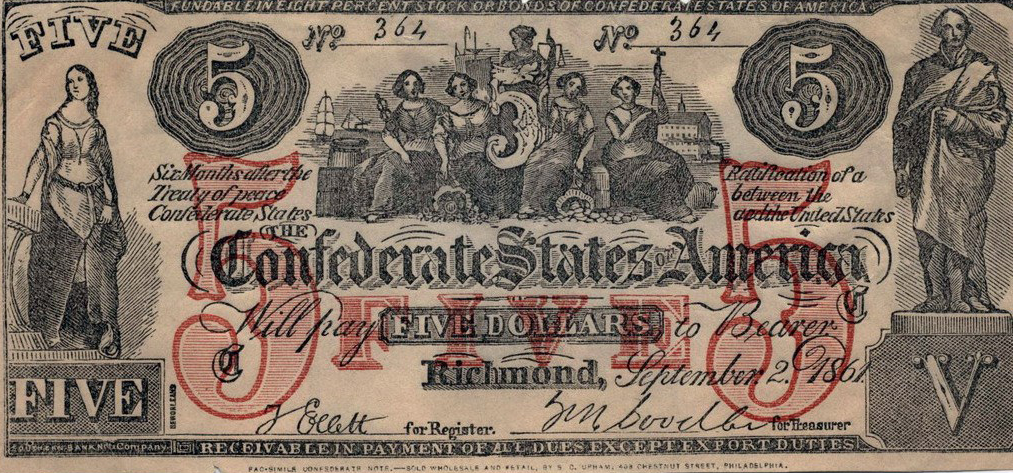 FUNDABLE IN EIGHT PERCENT STOCK OR BONDS OF CONFEDERATE STATES OF AMERICA
FIVE
5
No 364
No 364
5
5
Six Months after the
Treaty of peace
Confederate States
Ratification of a
between the
and the United States
5
5
THE
Confederate States of America
Will pay FIVE DOLLARS to Bearer
FIVE
C
C
Richmond, September 2, 1861
FIVE
V
J Ellett for Register.
for Treasurer
SOUTHERN BANK NOTE Company.
RECEIVABLE IN PAYMENT OF ALL DUES EXCEPT EXPORT DUTIES
FAC-SIMILE CONFEDERATE NOTE.—SOLD WHOLESALE AND RETAIL, BY S. C. UPHAM, 403 CHESTNUT STREET, PHILADELPHIA.